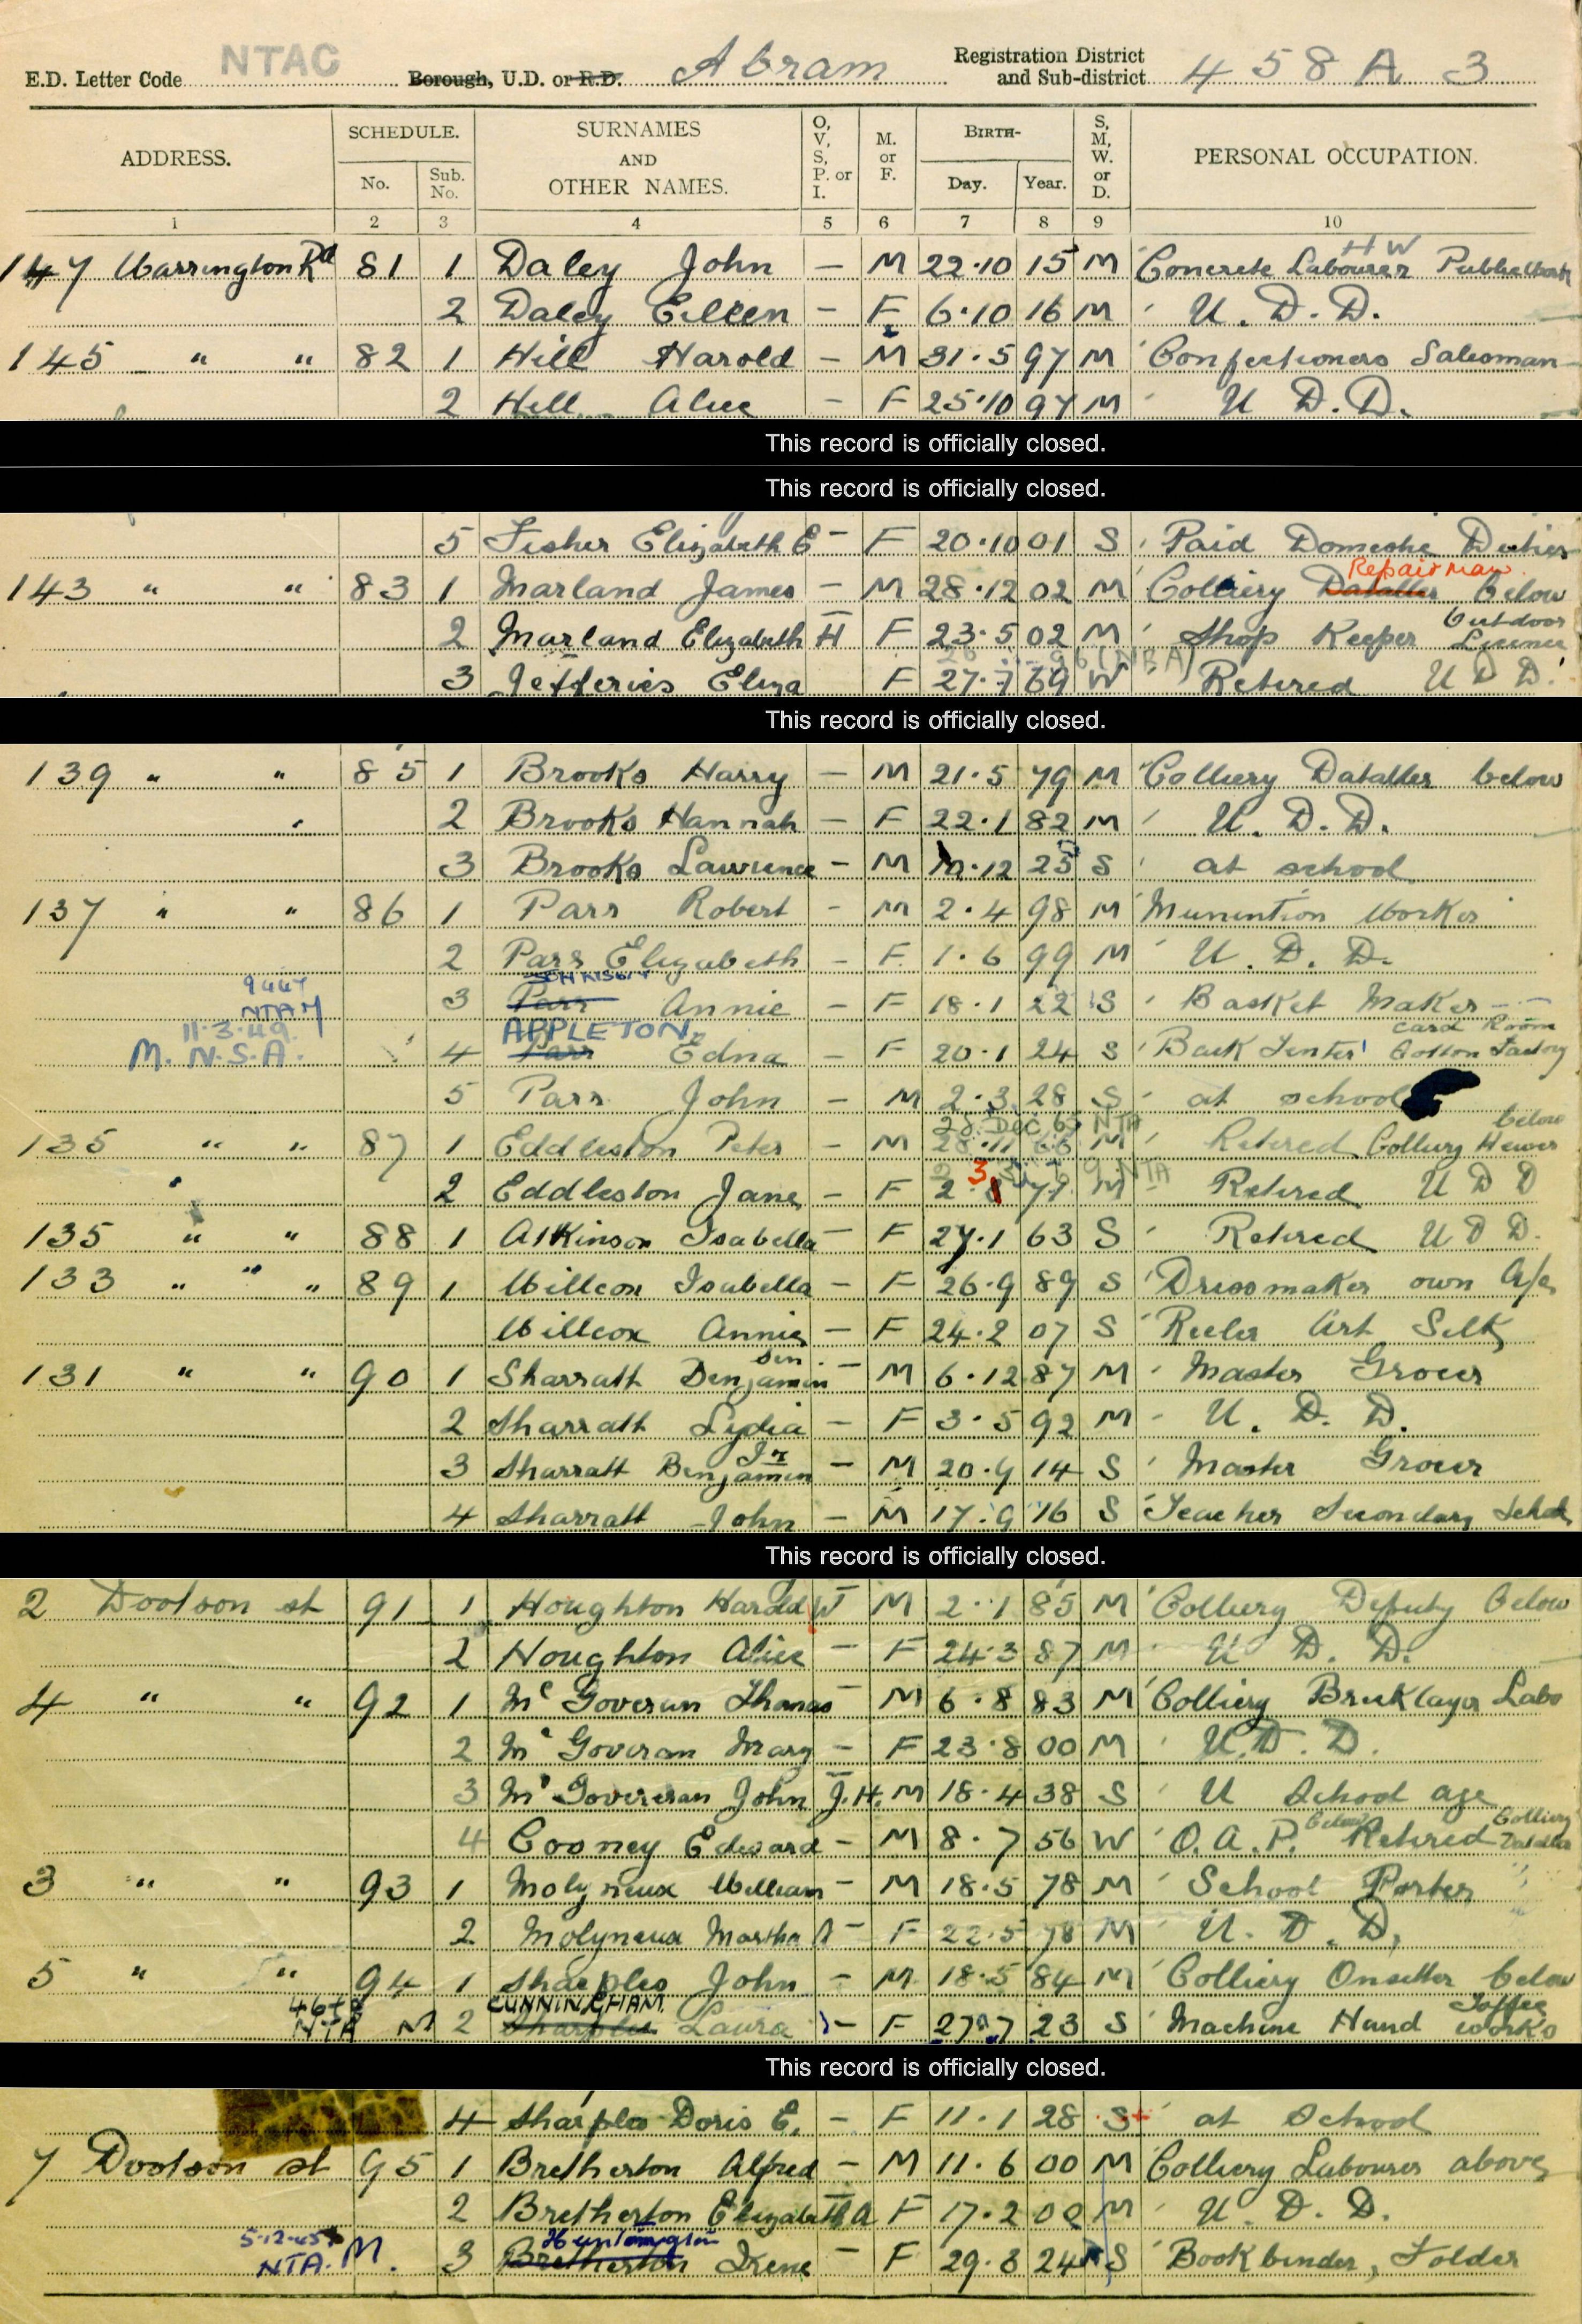 E.D. Letter Code NTAC Borough, U.D. or R.D. Abram Registration District and Sub-district 458 A 3
ADDRESS. SCHEDULE. No. Sub. No. SURNAMES AND OTHER NAMES. O, V, S, P. or I. M. or F. BIRTH- Day. Year. S, M, W. or D. PERSONAL OCCUPATION.
1 2 3 4 5 6 7 8 9 10
HW
147 Warrington Rd 81 1 Daley John – M 22·10 15 M Concrete Labourer Public Works
2 Daley Eileen – F 6·10 16 M U. D. D.
145 " " 82 1 Hill Harold – M 31·5 97 M Confectioners Salesman
2 Hill Alice – F 25·10 97 M U D. D.
This record is officially closed.
This record is officially closed.
5 Fisher Elizabeth E – F 20·10 01 S Paid Domestic Duties
Repairman
143 " " 83 1 Marland James – M 28·12 02 M Colliery Dataller below
2 Marland Elizabeth H F 23·5 02 M Shop Keeper Outdoor Licence
(NBA)
3 Jefferies Eliza F 27·7 69 W Retired U D D.
This record is officially closed.
139 " " 85 1 Brooks Harry – M 21·5 79 M Colliery Dataller below
2 Brooks Hannah – F 22·1 82 M U. D. D.
3 Brooks Lawrence – M 12 25 S at school
137 " " 86 1 Parr Robert – M 2·4 98 M Munintion Worker
2 Parr Elizabeth – F 1·6 99 M U. D. D.
NTAM
3 Parr Annie – F 18·1 22 S Basket Maker
11·3·49 APPLETON Card Room
M. N.S.A. 4 Parr Edna – F 20·1 24 S Back Tenter Cotton Factory
5 Parr John – M 2·3 28 S at school
28 Dec 65 NTA below
135 " " 87 1 Eddleston Peter – M 28·11 66 M Retired Colliery Hewer
3 NTA
2 Eddleston Jane – F 2 79 M Retired U D D
135 " " 88 1 Atkinson Isabella – F 27·1 63 S Retired U D D.
133 " " 89 1 Willcox Isabella – F 26·9 89 S Dressmaker own A/c
Willcox Annie – F 24·2 07 S Reeler Art Silk
131 " " 90 1 Sharratt Benjamin Sen. – M 6·12 87 M Master Grocer
2 Sharratt Lydia – F 3·5 92 M U. D. D.
3 Sharratt Benjamin Jr – M 20·9 14 S Master Grocer
4 Sharratt John – M 17·9 16 S Teacher Secondary School
This record is officially closed.
2 Dootson st 91 1 Houghton Harold W M 2·1 85 M Colliery Deputy below
2 Houghton Alice – F 24·3 87 M U D. D.
4 " " 92 1 Mc Goveran Thomas – M 6·8 83 M Colliery Bricklayer Labo
2 Mc Goveran Mary – F 23·8 00 M U. D. D.
3 Mc Goveran John J.H. M 18·4 38 S U School age
4 Cooney Edward – M 8·7 56 W O. A. P. Below Retired Colliery Dataller
3 " " 93 1 Molyneux William – M 18·5 78 M School Porter
2 Molyneux Martha A – F 22·5 78 M U. D. D.
5 " " 94 1 Sharples John – M 18·5 84 M Colliery Onsetter below
CUNNINGHAM Toffee
NTA M 2 Sharples Laura – F 27·7 23 S Machine Hand works
This record is officially closed.
4 Sharples Doris E. – F 11·1 28 S at School
7 Dootson st 95 1 Bretherton Alfred – M 11·6 00 M Colliery Labourer above
2 Bretherton Elizabeth A F 17·2 00 M U. D. D.
5·12·45 Huntington
NTA. M. 3 Bretherton Irene – F 29·8 24 S Bookbinder, Folder